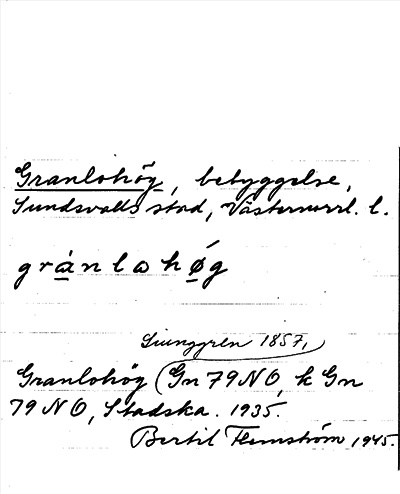 Granlohög, betyggelse,
Sundsvalls stad, Västernorrl. l.
grànlohǿg
Ljunggren 1857,
Granlohög (Gn 79 NO, k Gn
79 NO, Stadska. 1935.
Bertil Flemström 1945.